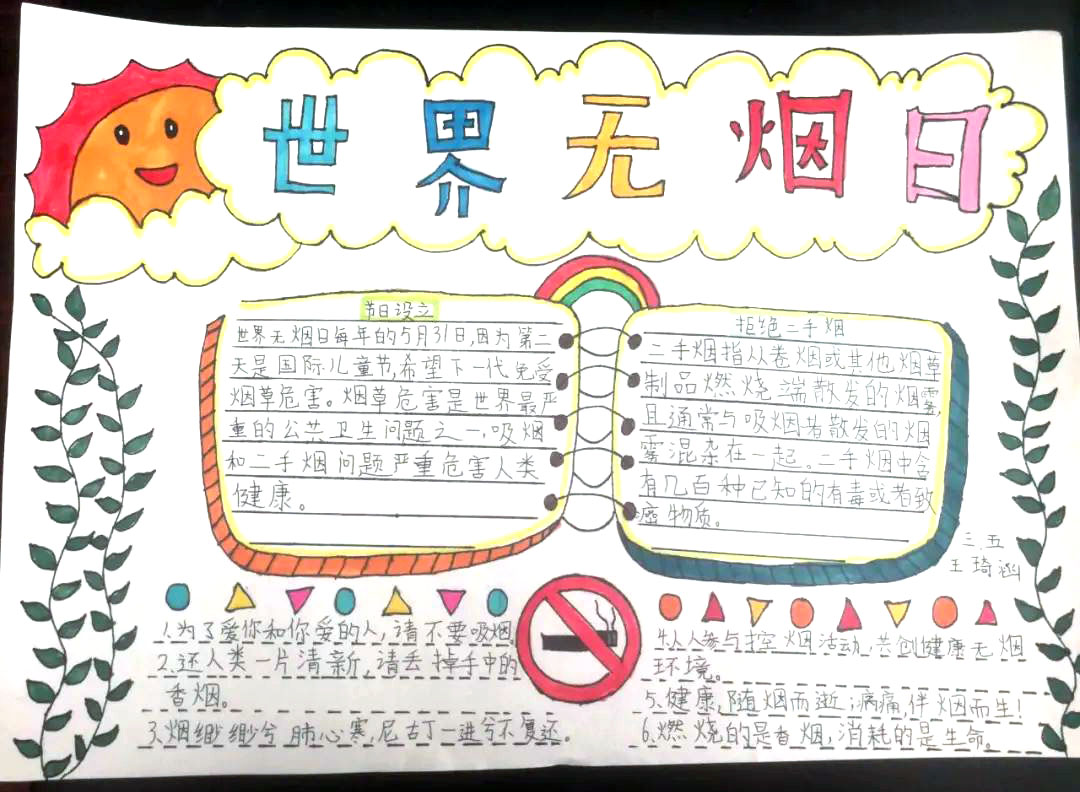 世界无烟日
节日设立
世界无烟日每年的5月31日,因为第二
天是国际儿童节,希望下一代免受
烟草危害。烟草危害是世界最严
重的公共卫生问题之一,吸烟
和二手烟问题严重危害人类
健康。
拒绝二手烟
二手烟指从卷烟或其他烟草
制品燃烧端散发的烟雾,
且通常与吸烟者散发的烟
雾混杂在一起。二手烟中含
有几百种已知的有毒或者致
癌物质。
三.五
王琦涵
1.为了爱你和你爱的人,请不要吸烟。
2.还人类一片清新,请丢掉手中的
香烟。
3.烟缈缈兮肺心寒,尼古丁一进兮不复还。
4.人人参与控烟活动,共创健康无烟
环境。
5.健康,随烟而逝;病痛,伴烟而生!
6.燃烧的是香烟,消耗的是生命。